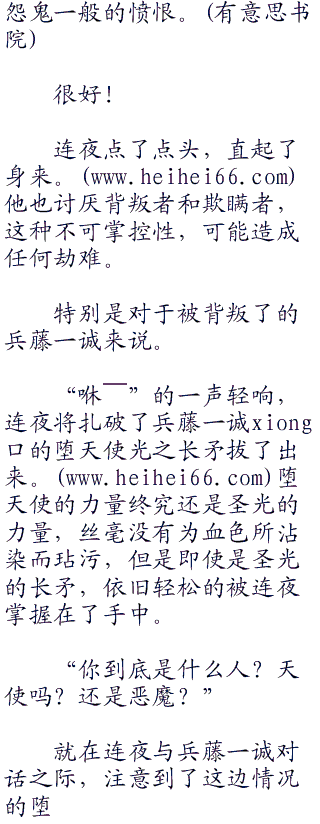 怨鬼一般的愤恨。(有意思书
院)
很好!
连夜点了点头，直起了
身来。(www.heihei66.com)
他也讨厌背叛者和欺瞒者，
这种不可掌控性，可能造成
任何劫难。
特别是对于被背叛了的
兵藤一诚来说。
“咻——”的一声轻响，
连夜将扎破了兵藤一诚xiong
口的堕天使光之长矛拔了出
来。(www.heihei66.com)堕
天使的力量终究还是圣光的
力量，丝毫没有为血色所沾
染而玷污，但是即使是圣光
的长矛，依旧轻松的被连夜
掌握在了手中。
“你到底是什么人？天
使吗？还是恶魔？”
就在连夜与兵藤一诚对
话之际，注意到了这边情况
的堕